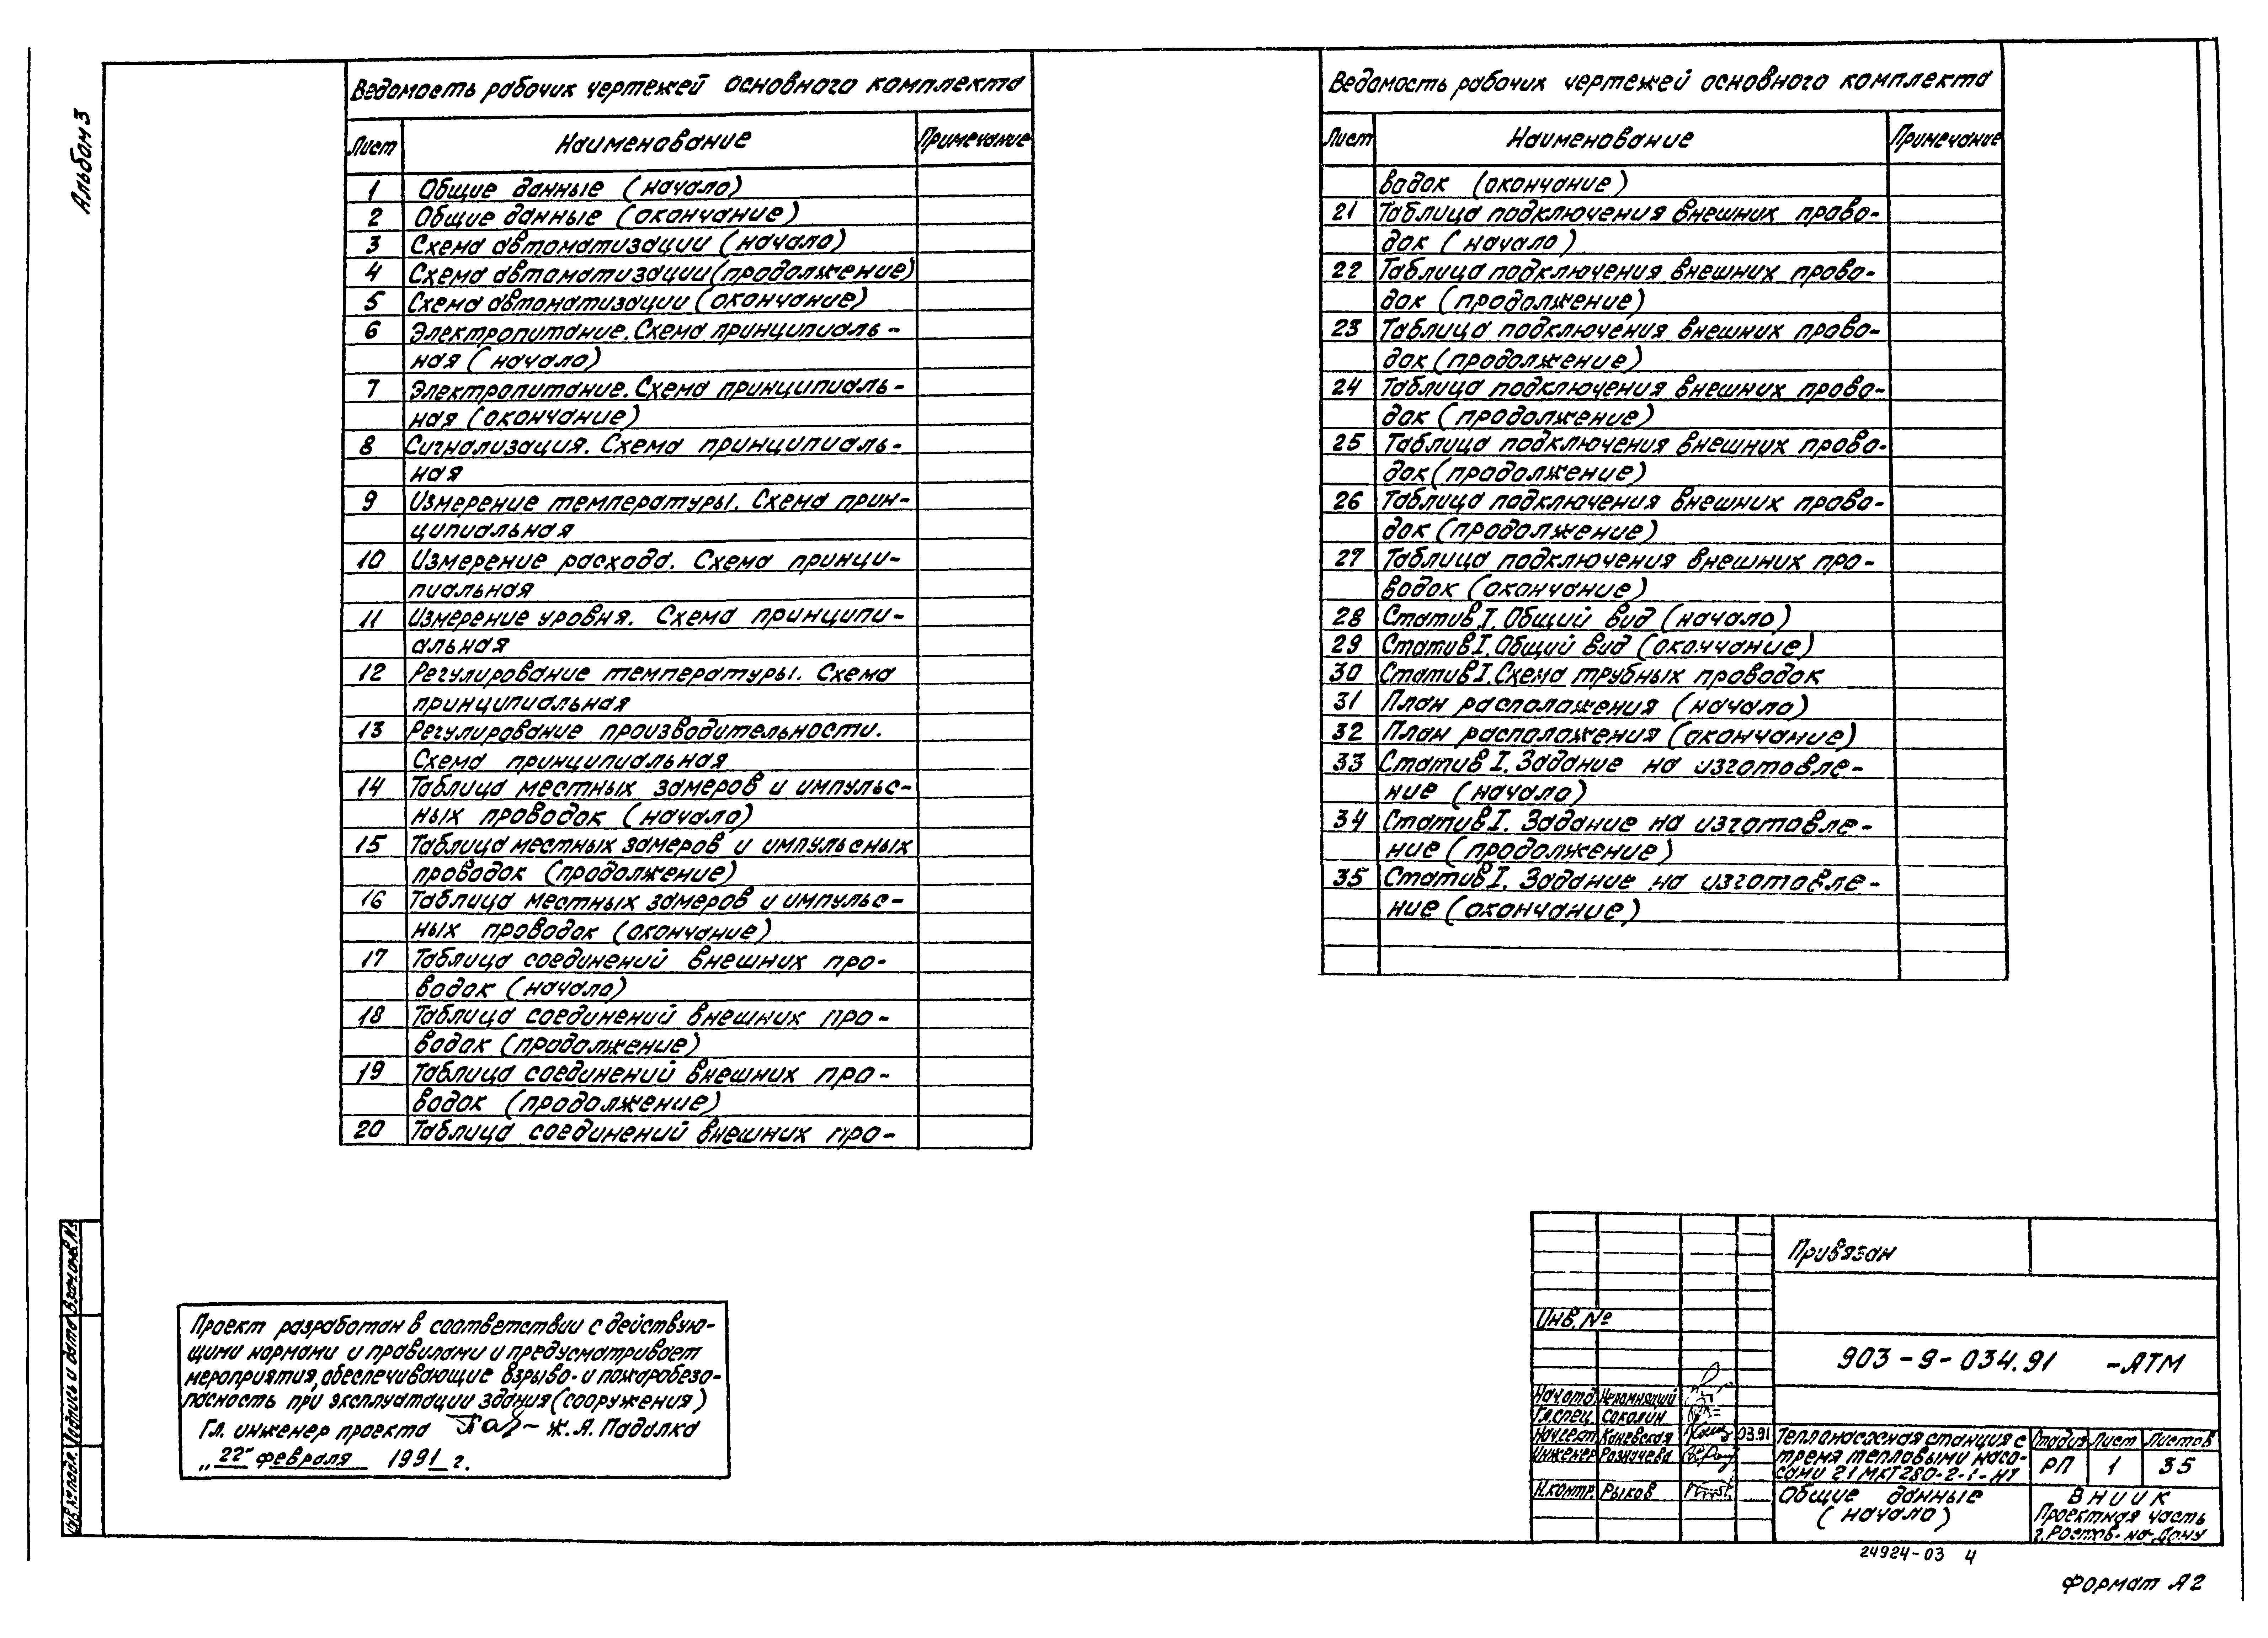 Альбом 3
Ведомость рабочих чертежей основного комплекта
Лист Наименование Примечание
1 Общие данные (начало)
2 Общие данные (окончание)
3 Схема автоматизации (начало)
4 Схема автоматизации (продолжение)
5 Схема автоматизации (окончание)
6 Электропитание. Схема принципиаль-
ная (начало)
7 Электропитание. Схема принципиаль-
ная (окончание)
8 Сигнализация. Схема принципиаль-
ная
9 Измерение температуры. Схема прин-
ципиальная
10 Измерение расхода. Схема принци-
пиальная
11 Измерение уровня. Схема принципи-
альная
12 Регулирование температуры. Схема
принципиальная
13 Регулирование производительности.
Схема принципиальная
14 Таблица местных замеров и импульс-
ных проводок (начало)
15 Таблица местных замеров и импульсных
проводок (продолжение)
16 Таблица местных замеров и импульс-
ных проводок (окончание)
17 Таблица соединений внешних про-
водок (начало)
18 Таблица соединений внешних про-
водок (продолжение)
19 Таблица соединений внешних про-
водок (продолжение)
20 Таблица соединений внешних про-
Ведомость рабочих чертежей основного комплекта
Лист Наименование Примечание
водок (окончание)
21 Таблица подключения внешних прово-
док (начало)
22 Таблица подключения внешних прово-
док (продолжение)
23 Таблица подключения внешних прово-
док (продолжение)
24 Таблица подключения внешних прово-
док (продолжение)
25 Таблица подключения внешних прово-
док (продолжение)
26 Таблица подключения внешних прово-
док (продолжение)
27 Таблица подключения внешних про-
водок (окончание)
28 Статив I. Общий вид (начало)
29 Статив I. Общий вид (окончание)
30 Статив I. Схема трубных проводок
31 План расположения (начало)
32 План расположения (окончание)
33 Статив I. Задание на изготовле-
ние (начало)
34 Статив I. Задание на изготовле-
ние (продолжение)
35 Статив I. Задание на изготовле-
ние (окончание)
Проект разработан в соответствии с действую-
щими нормами и правилами и предусматривает
мероприятия, обеспечивающие взрыво- и пожаробезо-
пасность при эксплуатации здания (сооружения)
Гл. инженер проекта Ж.Я. Падалка
„22" февраля 1991 г.
Инв. № подл. Подпись и дата Взам. инв. №
Привязан
Инв. №
903-9-034.91 -АТМ
Нач. отд.
Гл. спец. Соколин
Нач. сект. Каневская 03.91
Инженер Розничева
Н. контр. Рыков
Теплонасосная станция с
тремя тепловыми насо-
сами 21МКТ280-2-1-НТ
Стадия Лист Листов
РП 1 35
Общие данные
(начало)
ВНИИК
Проектная часть
г. Ростов-на-Дону
24924-03 4
Формат А2